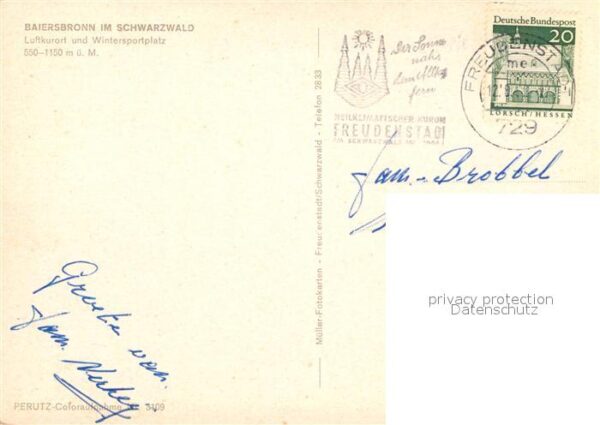 BAIERSBRONN IM SCHWARZWALD
Luftkurort und Wintersportplatz
550–1150 m ü. M.
Der Sonne
nahe
dem Alltag
fern
HEILKLIMATISCHER KURORT
FREUDENSTADT
Deutsche Bundespost
20
LORSCH/HESSEN
FREUDENSTADT
729
Fam. Brobbel
privacy protection
Datenschutz
Müller-Fotokarten - Freudenstadt/Schwarzwald - Telefon 2833
Groeten van
Fam.
PERUTZ-Coloraufnahme 5109